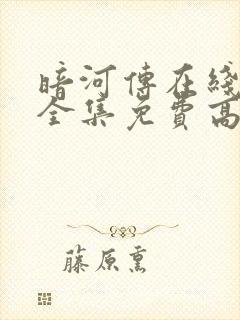 暗河傳在綫
全集免費高
藤原熏